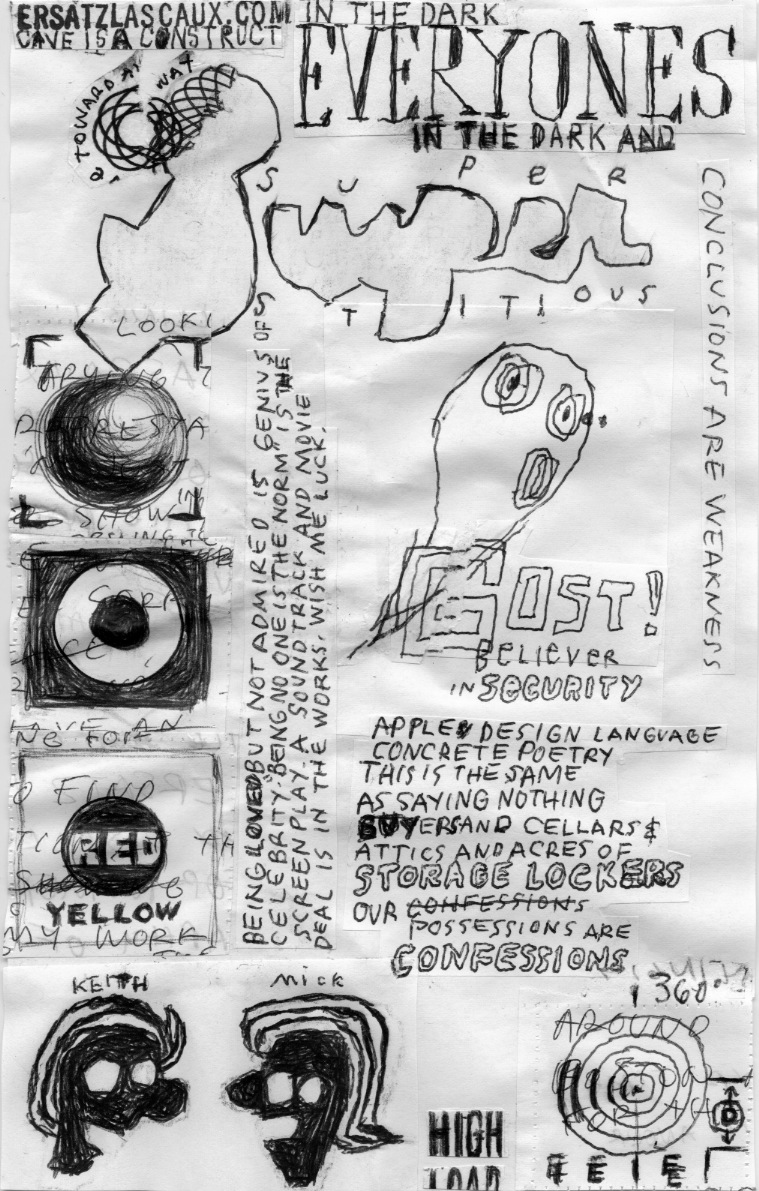 ERSATZLASCAUX.COM
CAVE IS A CONSTRUCT
IN THE DARK
EVERYONES
IN THE DARK AND
TOWARD
SUPER
TITIOUS
CONCLUSIONS ARE WEAKNESS
LOOK
GOST!
BELIEVER
IN SECURITY
APPLE DESIGN LANGUAGE
CONCRETE POETRY
THIS IS THE SAME
AS SAYING NOTHING
BUYERS AND CELLARS &
ATTICS AND ACRES OF
STORAGE LOCKERS
OUR CONFESSIONS
POSSESSIONS ARE
CONFESSIONS
BEING LOVED BUT NOT ADMIRED IS GENIUS OF
CELEBRITY. "BEING NO ONE IS THE NORM" IS THE
SCREENPLAY. A SOUND TRACK AND MOVIE
DEAL IS IN THE WORKS. WISH ME LUCK.
SHOW
FIND
RED
YELLOW
MY WORK
KEITH
MICK
HIGH
LOAD
360°
AROUND